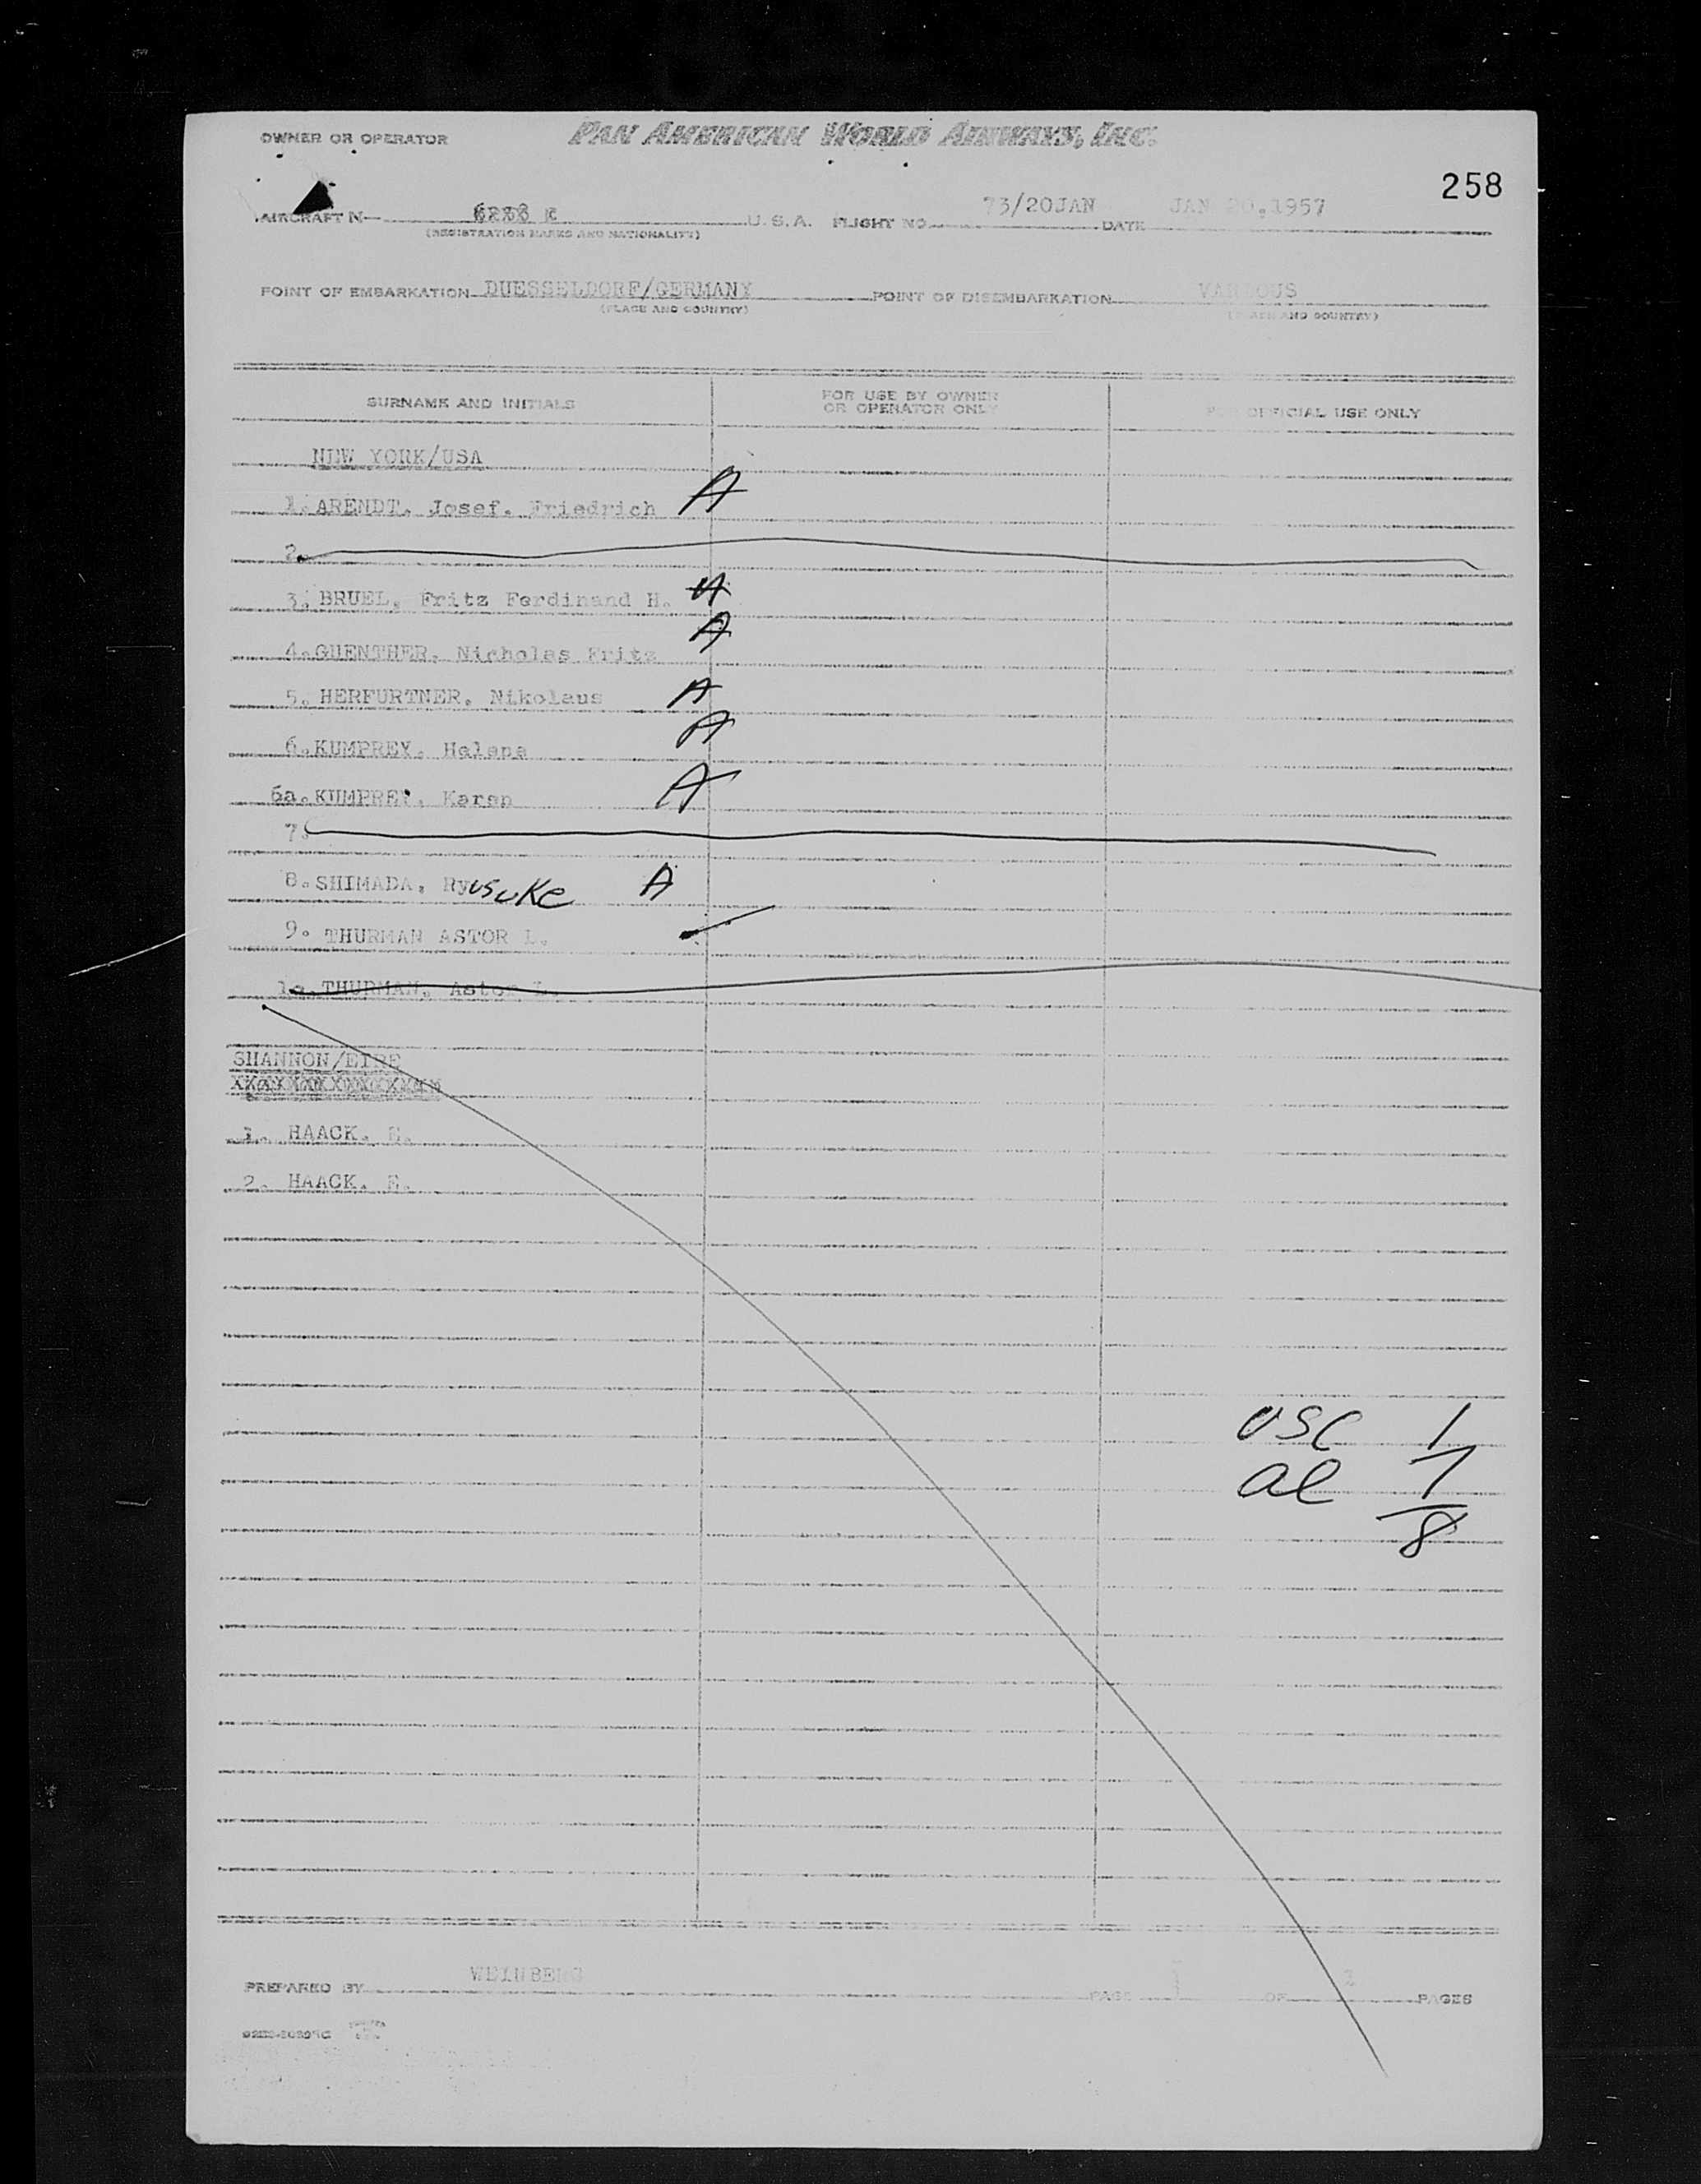 OWNER OR OPERATOR PAN AMERICAN WORLD AIRWAYS, INC.
258
AIRCRAFT N U.S.A. FLIGHT NO. 73/20JAN DATE JAN 20.1957
(REGISTRATION MARKS AND NATIONALITY)
POINT OF EMBARKATION DUESSELDORF/GERMANY POINT OF DISEMBARKATION VARIOUS
(PLACE AND COUNTRY) (PLACE AND COUNTRY)
SURNAME AND INITIALS FOR USE BY OWNER OR OPERATOR ONLY FOR OFFICIAL USE ONLY
NEW YORK/USA
1. ARENDT, Josef. Friedrich A
2.
3. BRUEL, Fritz Ferdinand H. A
4. GUENTHER, Nicholas Fritz A
5. HERFURTNER, Nikolaus A
6. KUMPREY, Helene A
6a. KUMPREY, Karen A
7.
8. SHIMADA, Ryusuke A
9. THURMAN ASTOR L.
THURMAN, Astor L.
SHANNON/EIRE
1. HAACK. E.
2. HAACK. E.
USC 1
al 7
8
PREPARED BY WEINBERG PAGE OF PAGES